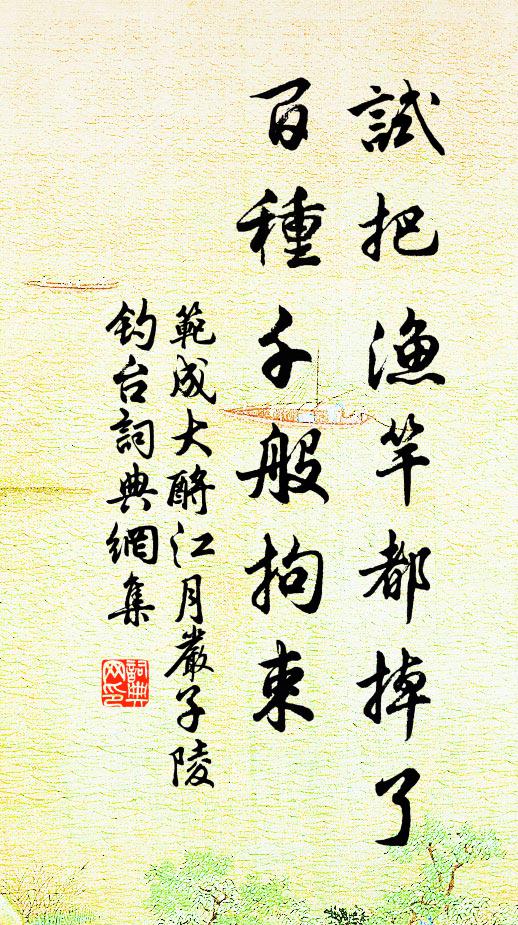 試把漁竿都掉了
百種千般拘束
範成大酹江月嚴子陵
釣台詞典網集
詞典网印